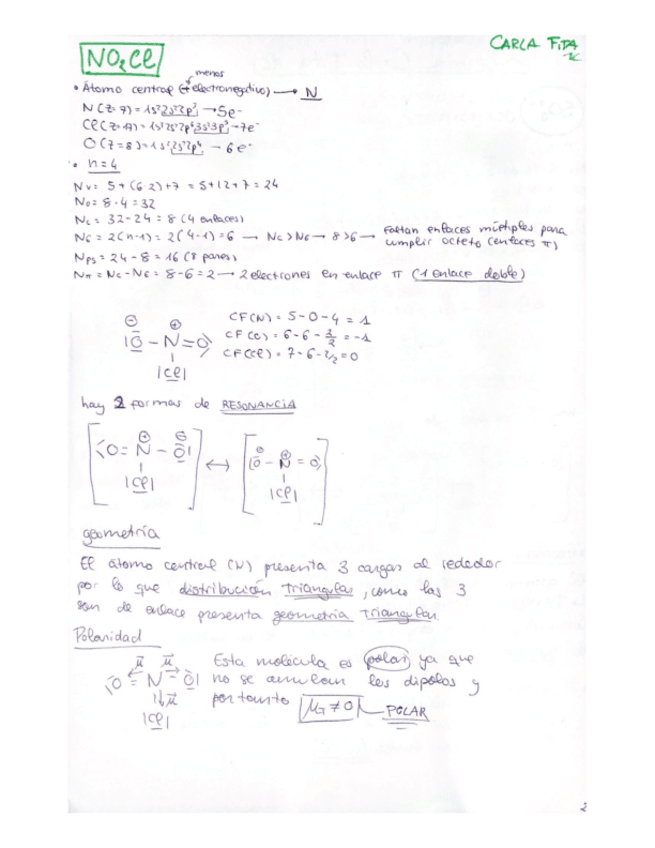 CARLA FITA
NO2Cl
menos
• Átomo central (+ electronegativo) → N
N (Z=7) = 1s²2s²2p³ → 5e⁻
Cl (Z=17) = 1s²2s²2p⁶3s²3p⁵ → 7e⁻
O (Z=8) = 1s²2s²2p⁴ → 6e⁻
• n=4
Nv = 5+(6·2)+7 = 5+12+7 = 24
No = 8·4 = 32
Nc = 32-24 = 8 (4 enlaces)
N6 = 2(n-1) = 2(4-1) = 6 → Nc > N6 → 8>6 → Faltan enlaces múltiples para
cumplir octeto (enlaces π)
NPS = 24-8 = 16 (8 pares)
Nπ = Nc - N6 = 8-6 = 2 → 2 electrones en enlace π (1 enlace doble)
CF(N) = 5-0-4 = 1
CF(O) = 6-6-2/2 = -1
CF(Cl) = 7-6-2/2 = 0
⊖ ⊕
|O - N = O
|
|Cl|
hay 2 formas de RESONANCIA
⊕ ⊖ ⊖ ⊕
[O = N - O|] ↔ [|O - N = O]
| |
|Cl| |Cl|
geometría
El átomo central (N) presenta 3 cargas al rededor
por lo que distribución Triangular, como las 3
son de enlace presenta geometría Triangular.
Polaridad
μ μ
O = N - O|
μ
|Cl|
Esta molécula es polar ya que
no se anulan los dipolos y
por tanto μT ≠ 0 POLAR
2